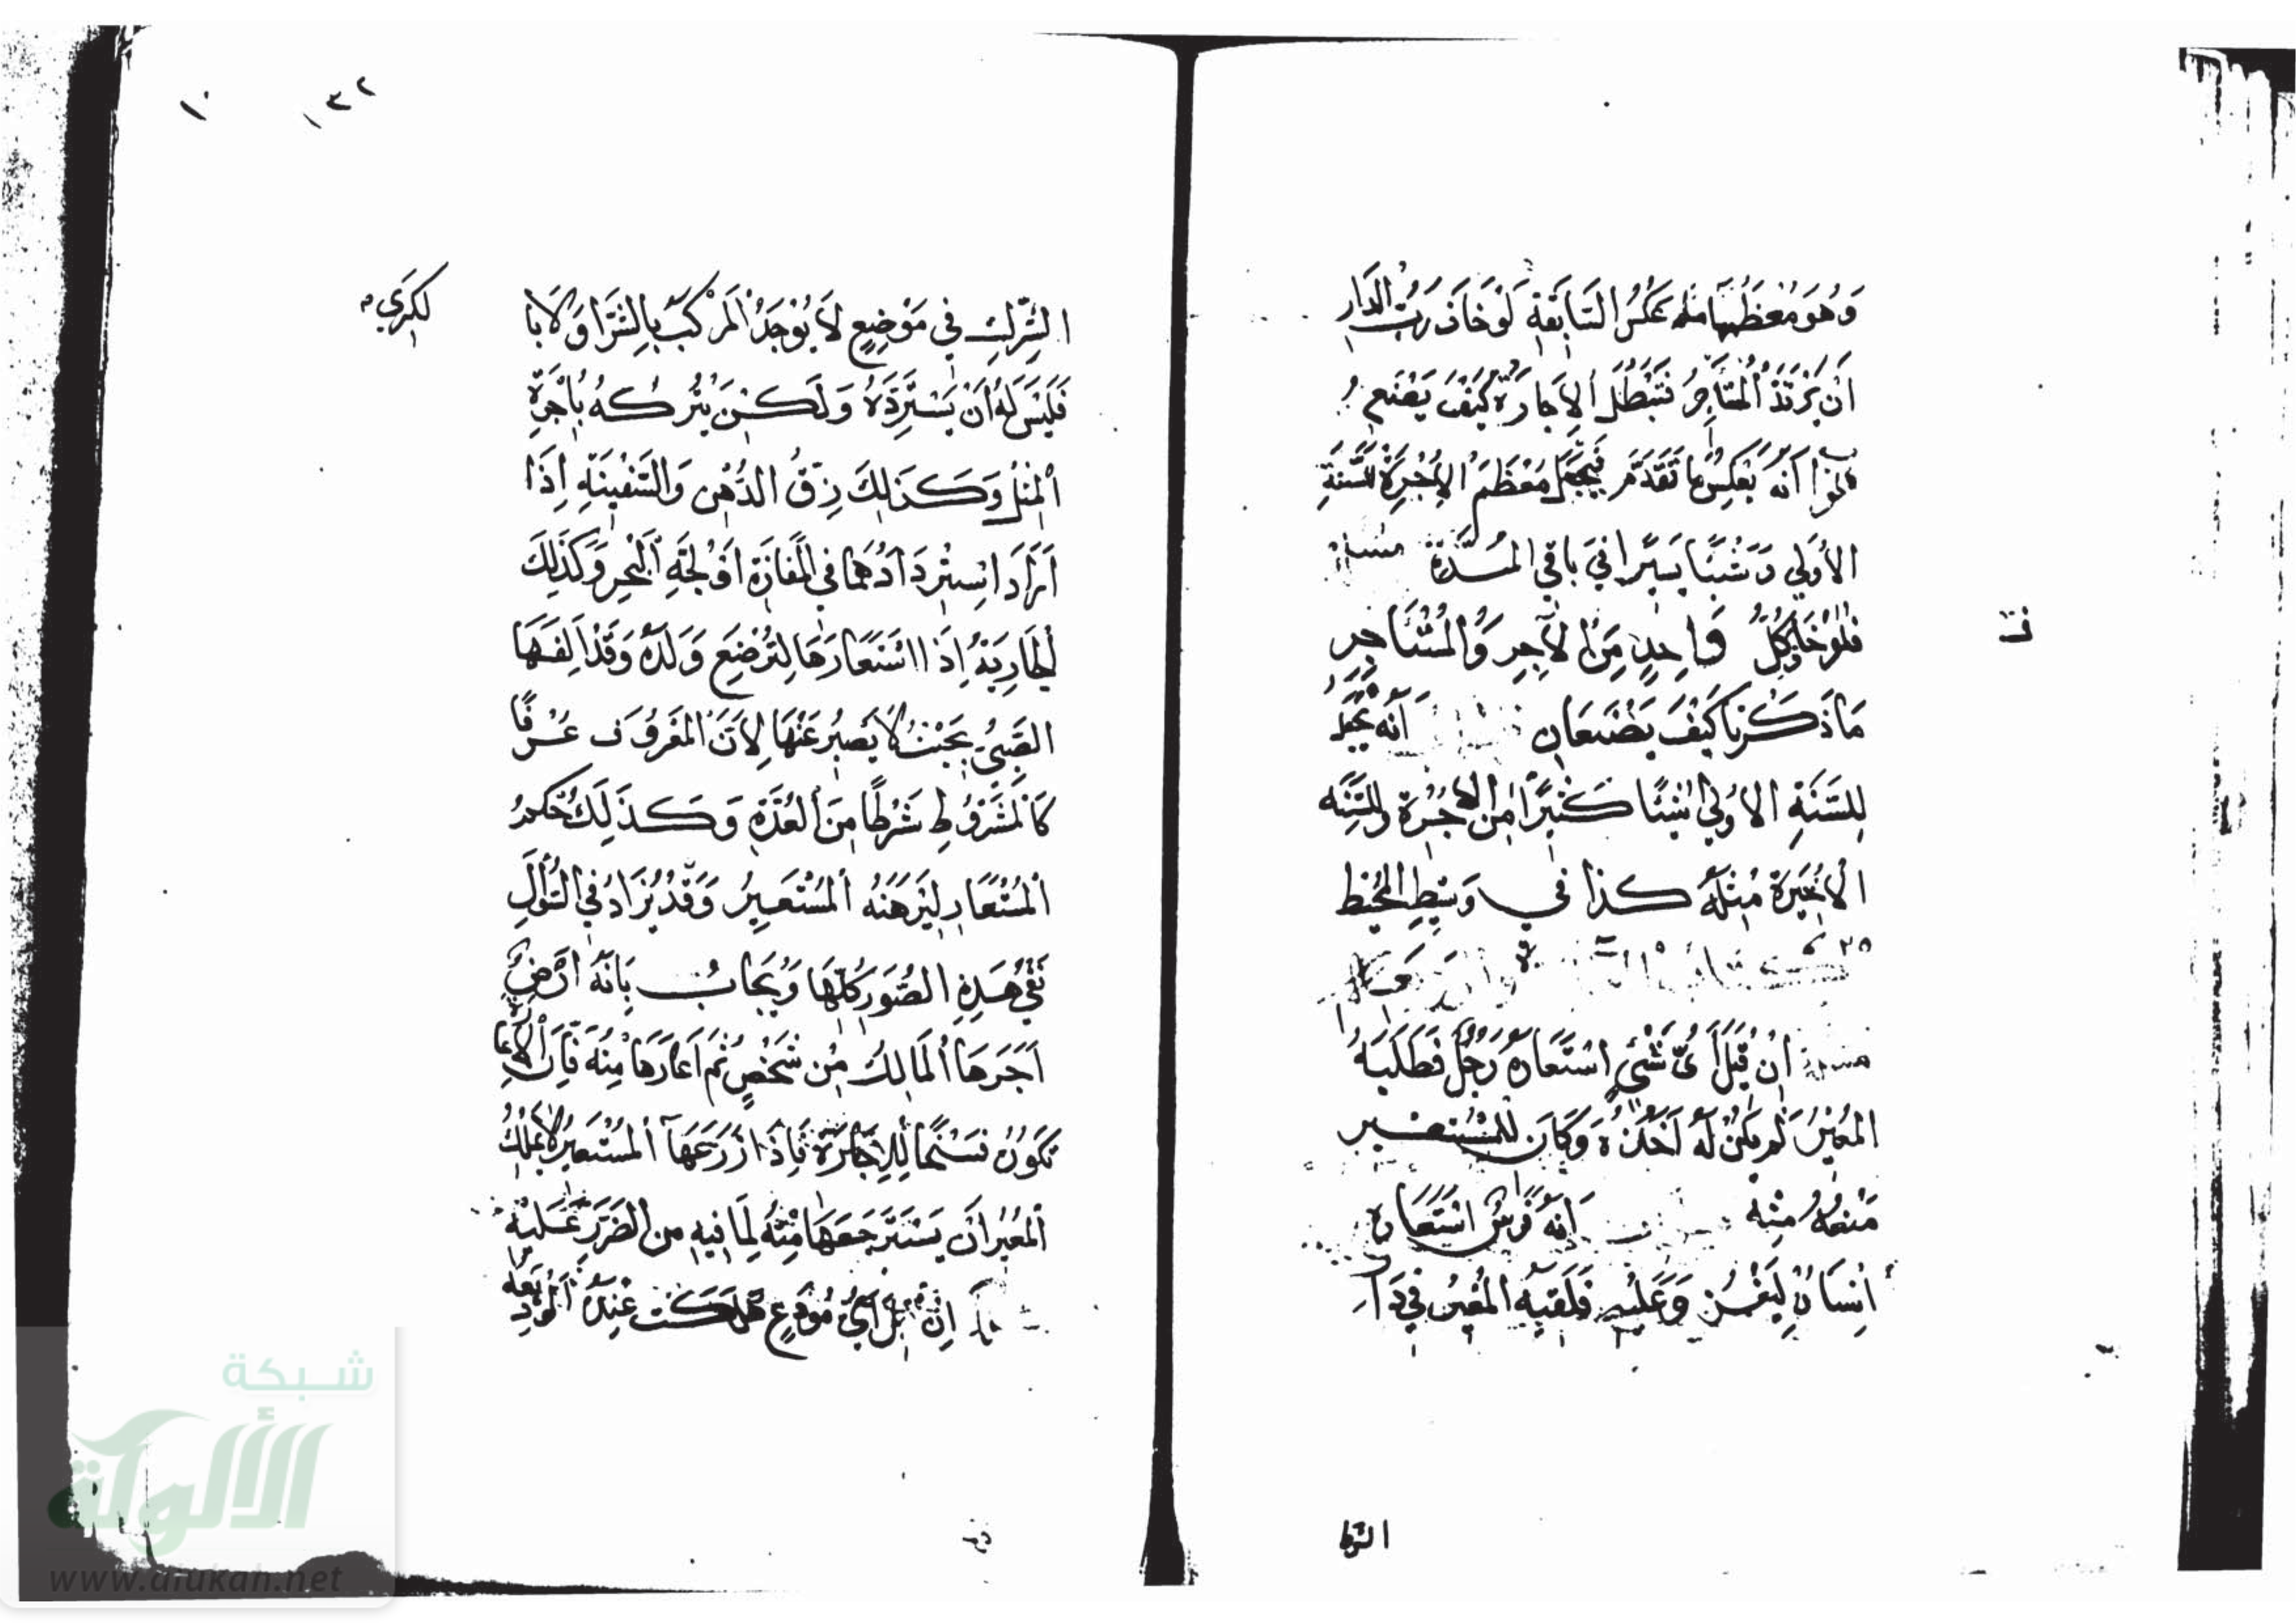 وَهُوَ مُعْظَمُهَا مثله عَكْسُ السَّابِقَةِ لَوْ خَافَ رَبُّ الدَّارِ
اَنْ يَرْتَدَّ الْمُسْتَأْجِرُ فَتَبْطُلَ الاِجَارَةُ كَيْفَ يَصْنَعُ
اَنَّهُ يَعْكِسُ مَا تَقَدَّمَ فَيَجْعَلُ مُعْظَمَ الاُجْرَةِ لِلسَّنَةِ
الأُولَى وَشَيْئًا يَسِيرًا فِي بَاقِي الْمُدَّةِ مسئلة
فَلَوْ خَافَ كُلُّ وَاحِدٍ مِنَ الآجِرِ وَالْمُسْتَأْجِرِ
مَا ذَكَرْنَا كَيْفَ يَصْنَعَانِ اَنَّهُ يَجْعَلُ
لِلسَّنَةِ الأُولَى شَيْئًا كَثِيرًا مِنَ الأُجْرَةِ وَلِلسَّنَةِ
الأَخِيرَةِ مِثْلَهُ كذا في وَسِيطِ الْمُحِيطِ
مسئلة اِنْ قِيلَ أَىُّ شَىْءٍ اسْتَعَارَهُ رَجُلٌ فَطَلَبَهُ
الْمُعِيرُ لَمْ يَكُنْ لَهُ أَخْذُهُ وَكَانَ لِلْمُسْتَعِيرِ
مَنْعُهُ مِنْهُ اَنَّهُ فَرَسٌ اسْتَعَارَهُ
اِنْسَانٌ لِيَغْزُوَ عَلَيْهِ فَلَقِيَهُ الْمُعِيرُ فِي دَارِ
الشرك
الشِّرْكِ فِي مَوْضِعٍ لاَ يُوْجَدُ الْمَرْكَبُ بِالشِّرَا وَلاَ بِا
لكرى م
فَلَيْسَ لَهُ اَنْ يَسْتَرِدَّهُ وَلَكِنْ يَتْرُكُهُ بِأُجْرَةِ
الْمِثْلِ وَكَذَلِكَ زِقُّ الدُّهْنِ وَالسَّفِينَةِ اِذَا
اَرَادَ اِسْتِرْدَادَهُمَا فِي الْمَفَازَةِ اَوْ لُجَّةِ الْبَحْرِ وَكَذَلِكَ
الْجَارِيَةُ اِذَا اسْتَعَارَهَا لِتُرْضِعَ وَلَدَهُ وَقَدْ اَلِفَهَا
الصَّبِيُّ بِحَيْثُ لاَ يَصْبِرُ عَنْهَا لِاَنَّ الْمَعْرُوفَ عُرْفًا
كَالْمَشْرُوطِ شَرْطًا مِنَ الْعُدَّةِ وَكَذَلِكَ حُكْمُ
الْمُسْتَعَارِ لِيَرْهَنَهُ الْمُسْتَعِيرُ وَقَدْ يُزَادُ فِي السُّؤَالِ
نَفْيُ هَذِهِ الصُّوَرِ كُلِّهَا وَيُجَابُ بِاَنَّهُ اَرْضٌ
اَجَرَهَا الْمَالِكُ مِنْ شَخْصٍ ثُمَّ اَعَارَهَا مِنْهُ فَاِنَّ الاِعَا
تَكُوْنُ فَسْخًا لِلاِجَارَةِ فَاِذَا زَرَعَهَا الْمُسْتَعِيرُ لاَ يَمْلِكُ
الْمُعِيرُ اَنْ يَسْتَرْجِعَهَا مِنْهُ لِمَا فِيهِ مِنَ الضَّرَرِ عَلَيْهِ
اِنْ قِيلَ أَىُّ مُوْدَعٍ هَلَكَتْ عِنْدَهُ الْوَدِيعَة